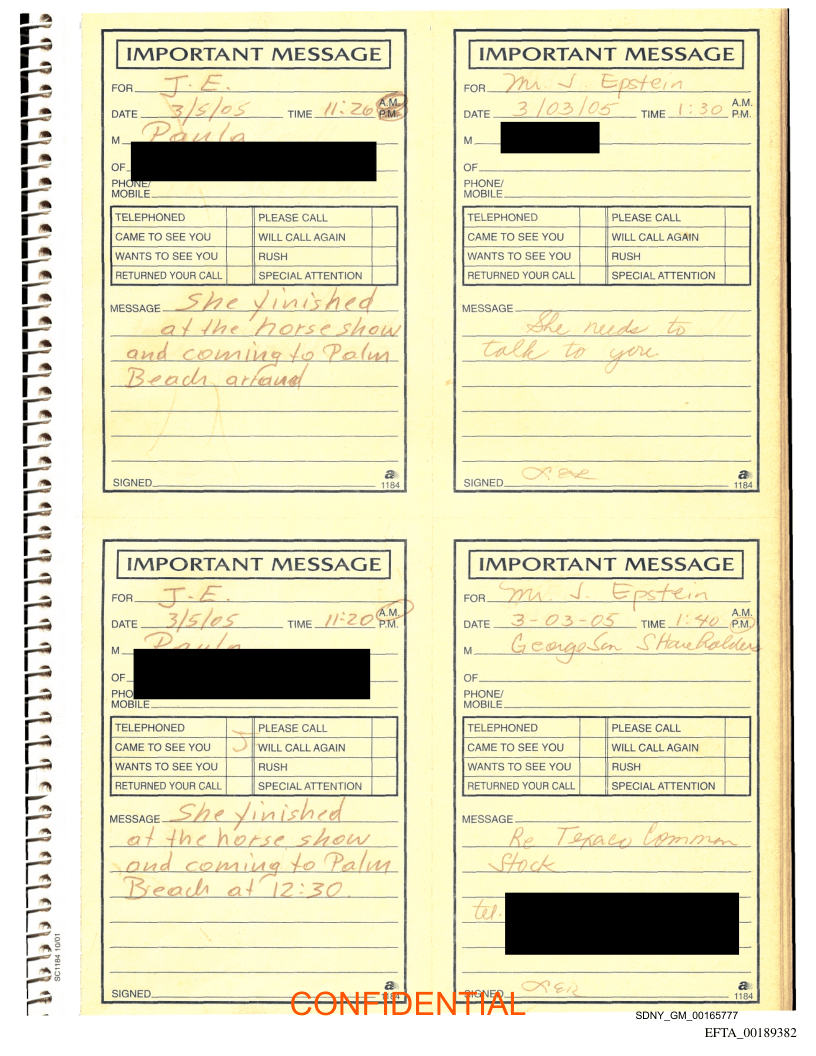 IMPORTANT MESSAGE
FOR J.E.
DATE 3/5/05 TIME 11:26 A.M. P.M.
M Paula
OF
PHONE/
MOBILE
TELEPHONED PLEASE CALL
CAME TO SEE YOU WILL CALL AGAIN
WANTS TO SEE YOU RUSH
RETURNED YOUR CALL SPECIAL ATTENTION
MESSAGE She finished
at the horse show
and coming to Palm
Beach
SIGNED
a
1184
IMPORTANT MESSAGE
FOR Mr. J. Epstein
DATE 3/03/05 TIME 1:30 A.M. P.M.
M
OF
PHONE/
MOBILE
TELEPHONED PLEASE CALL
CAME TO SEE YOU WILL CALL AGAIN
WANTS TO SEE YOU RUSH
RETURNED YOUR CALL SPECIAL ATTENTION
MESSAGE
She needs to
talk to you
SIGNED
a
1184
IMPORTANT MESSAGE
FOR J.E.
DATE 3/5/05 TIME 11:20 A.M. P.M.
M Paula
OF
PHO
MOBILE
TELEPHONED PLEASE CALL
CAME TO SEE YOU WILL CALL AGAIN
WANTS TO SEE YOU RUSH
RETURNED YOUR CALL SPECIAL ATTENTION
MESSAGE She finished
at the horse show
and coming to Palm
Beach at 12:30.
SIGNED
a
1184
IMPORTANT MESSAGE
FOR Mr. J. Epstein
DATE 3-03-05 TIME 1:40 A.M. P.M.
M GeorgeSon Shareholders
OF
PHONE/
MOBILE
TELEPHONED PLEASE CALL
CAME TO SEE YOU WILL CALL AGAIN
WANTS TO SEE YOU RUSH
RETURNED YOUR CALL SPECIAL ATTENTION
MESSAGE
Re Texaco Common
Stock
tel.
SIGNED
a
1184
SC1184 10/01
CONFIDENTIAL
SDNY_GM_00165777
EFTA_00189382